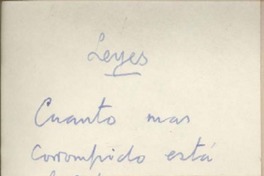 Leyes
Cuanto mas
corrompido está